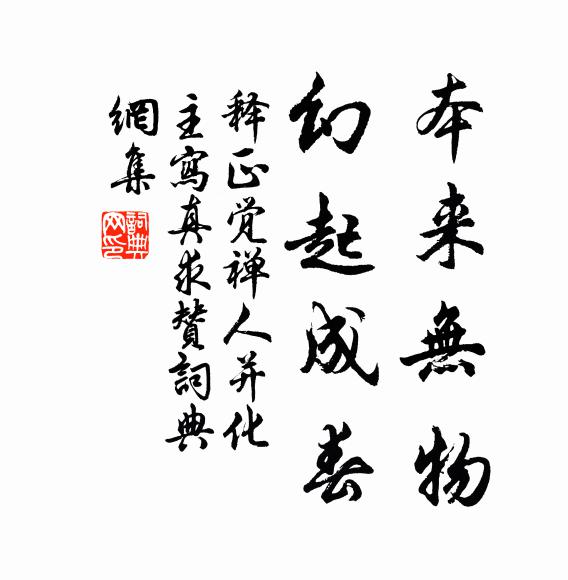 本来無物
幻起成春
释正觉禅人并化
主寫真求賛詞典
網集
詞典
网印